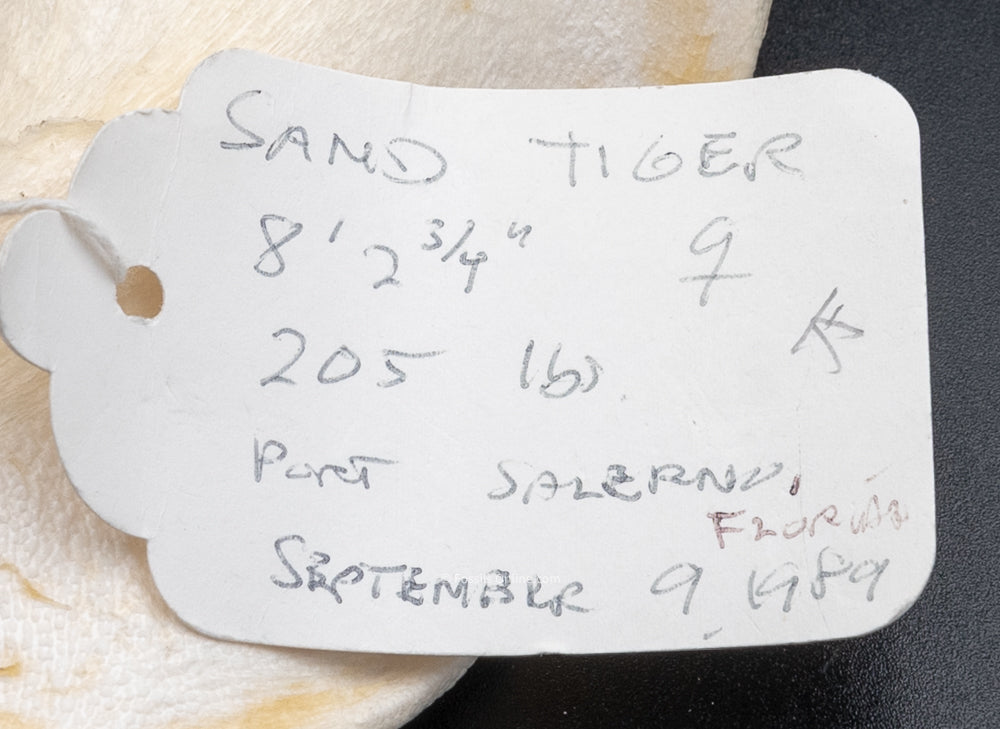 SAND TIGER
8' 2 3/4" ♀
205 lbs.
PORT SALERNO,
FLORIDA
SEPTEMBER 9 1989
FossilsOnline.com